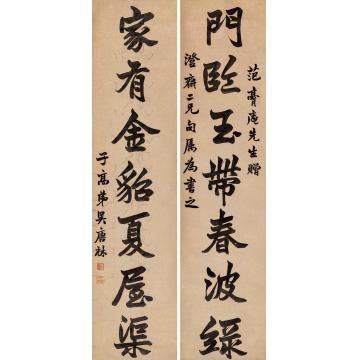 范膏庵先生贈
門臨玉帶春波綠
澄齋二兄句屬為書之
家有金貂夏屋渠
子高弟吳唐林